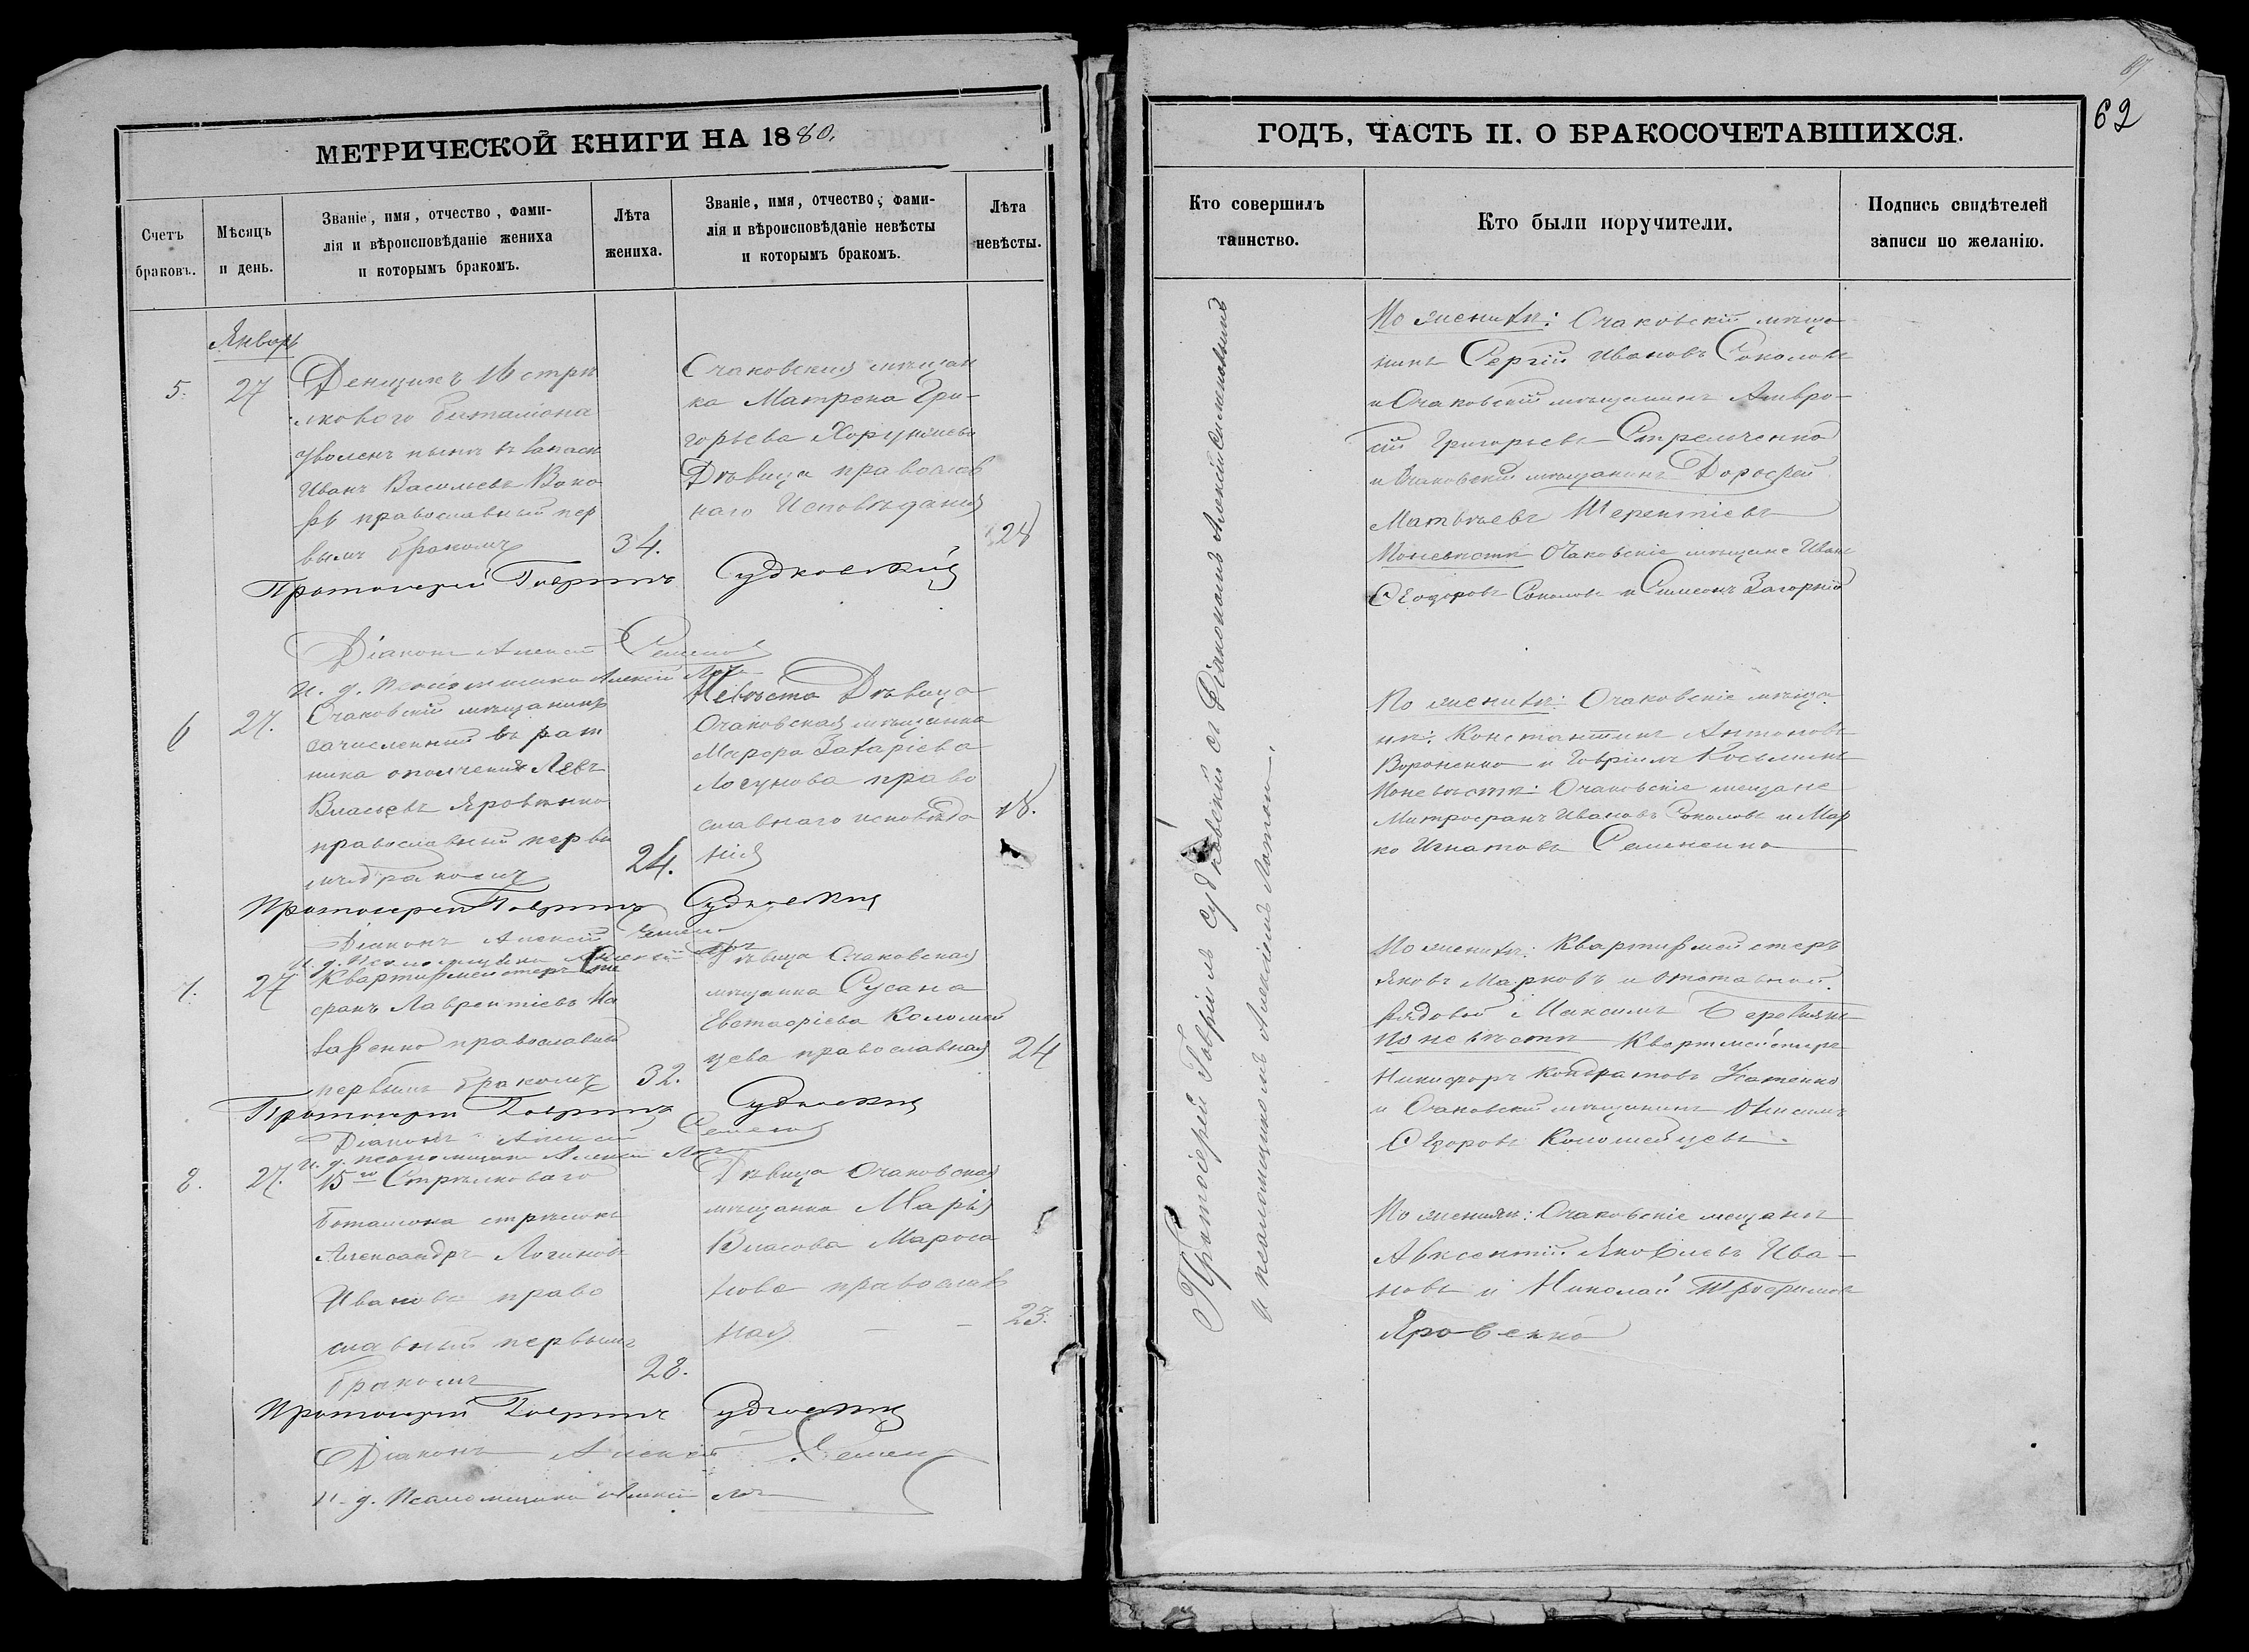 МЕТРИЧЕСКОЙ КНИГИ НА 1880.
Счетъ
браковъ.
Мѣсяцъ
и день.
Званіе, имя, отчество, фами-
лія и вѣроисповѣданіе жениха
и которымъ бракомъ.
Лѣта
жениха.
Званіе, имя, отчество, фами-
лія и вѣроисповѣданіе невѣсты
и которымъ бракомъ.
Лѣта
невѣсты.
Январь
5.
27
Денщикъ 16 стрѣ
лковаго баталіона
уволенъ нынѣ въ запасъ
Иванъ Васильевъ
православный пер
вымъ бракомъ
34.
Очаковская мѣщан
ка Матрена Гри-
горьева Хорунжева
Дѣвица православ
наго Исповѣданія
28
Протоіерей Гавріилъ Судковскій
Діаконъ Алексій
И. д. Псаломщика Алексій
6
27.
Очаковскій мѣщанинъ
зачисленный въ рат
ника ополченія Левъ
Власьевъ Яровенко
православный первы
мъ бракомъ
24.
Невѣста Дѣвица
Очаковская мѣщанка
Марфа Захаріева
Логунова право
славнаго исповѣда
нія
18.
Протоіерей Гавріилъ Судковскій
Діаконъ Алексій
И. д. Псаломщика Алексій
7.
27
Квартирмейстеръ Сте
фанъ Лаврентіевъ На
заренко православный
первымъ бракомъ
32.
Дѣвица Очаковская
мѣщанка Сусана
Евстафіева Коломей
цева православная
24
Протоіерей Гавріилъ Судковскій
Діаконъ Алексій
И. д. псаломщика Алексій
8.
27.
15го Стрѣлковаго
баталіона стрѣлокъ
Александръ Логиновъ
Ивановъ право
славный первымъ
бракомъ
28.
Дѣвица Очаковская
мѣщанка Марія
Власова Мароса
нова православ
ная
23.
Протоіерей Гавріилъ Судковскій
Діаконъ Алексій
И. д. Псаломщика Алексій
62
ГОДЪ, ЧАСТЬ II. О БРАКОСОЧЕТАВШИХСЯ.
Кто совершилъ
таинство.
Кто были поручители.
Подпись свидѣтелей
записи по желанію.
Протоіерей Гавріилъ Судковскій съ Діакономъ Алексіемъ
и псаломщикомъ Алексіемъ
По женихѣ: Очаковскій мѣща
нинъ Сергій Ивановъ Соколовъ
и Очаковскій мѣщанинъ Амвро-
сій Григорьевъ Стрельченко
и Очаковскій мѣщанинъ Дорофей
Матвѣевъ Терентіевъ
По невѣстѣ Очаковскіе мѣщане Иванъ
Ѳеодоровъ Соколовъ и Симеонъ Загорній
По женихѣ: Очаковскіе мѣща
не: Константинъ Антоновъ
Вороненко и Гавріилъ Косьминъ
По невѣстѣ: Очаковскіе мещане
Митрофанъ Ивановъ Соколовъ и Мар
ко Игнатовъ Семененко
По женихѣ: Квартирмейстеръ
Яковъ Марковъ и отставной
Рядовой Максимъ
По невѣстѣ Квартирмейстеръ
Никифоръ Кондратовъ
и Очаковскій мѣщанинъ Онисимъ
Ѳедоровъ Коломейцевъ.
По женихѣ: Очаковскіе мещане
Авксентій Яковлевъ Ива-
новъ и Николай Трофимовъ
Яровенко